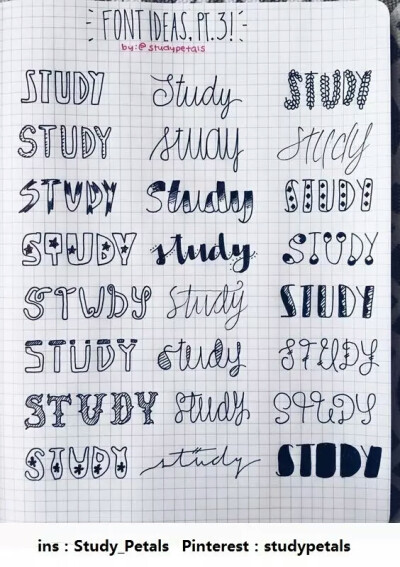 FONT IDEAS, PT.3!
by:@studypetals
STUDY Study STUDY
STUDY study Study
STUDY Study STUDY
STUDY study STUDY
STUDY Study STUDY
STUDY study STUDY
STUDY study STUDY
STUDY study STUDY
ins : Study_Petals Pinterest : studypetals